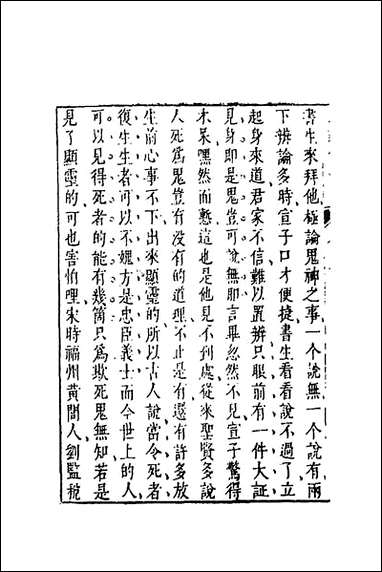 書生來拜他極論鬼神之事一个說無一个說有兩
下辨論多時宣子口才便捷書生看看說不過了立
起身來道君家不信難以置辨只眼前有一件大証
見身即是鬼豈可說無即言畢忽然不見宣子驚得
木呆嘿然而慙這也是他見不到處從來聖賢多說
人死爲鬼豈有没有的道理不止是有還有許多放
生前心事不下出來顯靈的所以古人說當令死者
復生生者可以不媿方是忠臣義士而今世上的人
可以見得死者的能有幾箇只爲欺死鬼無知若是
見了顯靈的可也害怕哩宋時福州黄閭人劉監稅